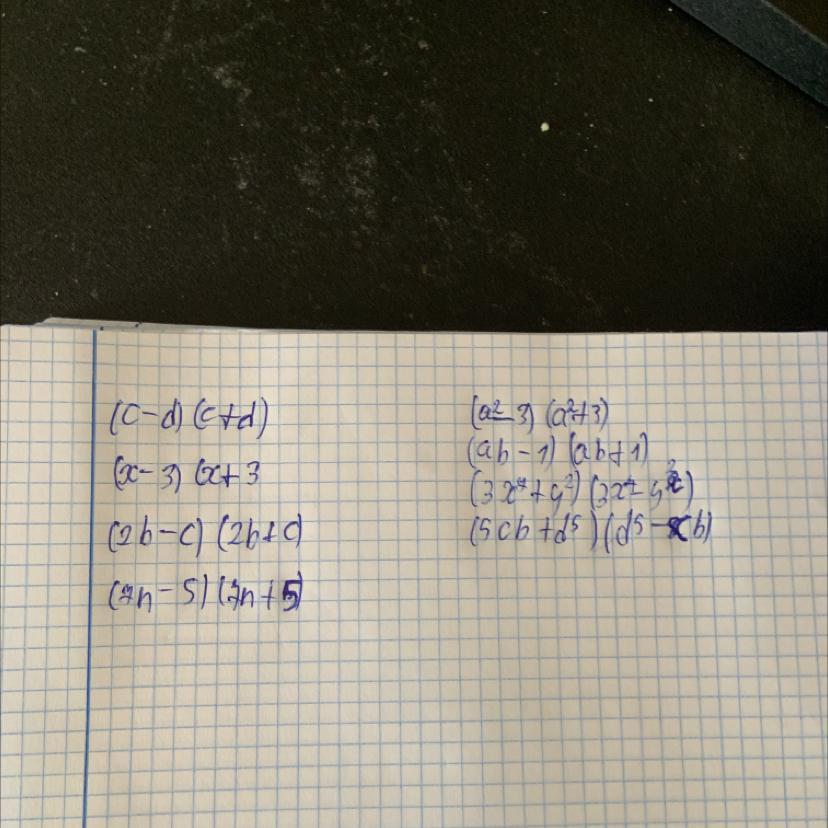 (c-d)(c+d)
(x-3)(x+3
(2b-c)(2b+c)
(7n-5)(7n+5)
(a²-3)(a²+3)
(ab-1)(ab+1)
(3x⁴+y²)(3x⁴-y²)
(5cb+d⁵)(d⁵-cb)